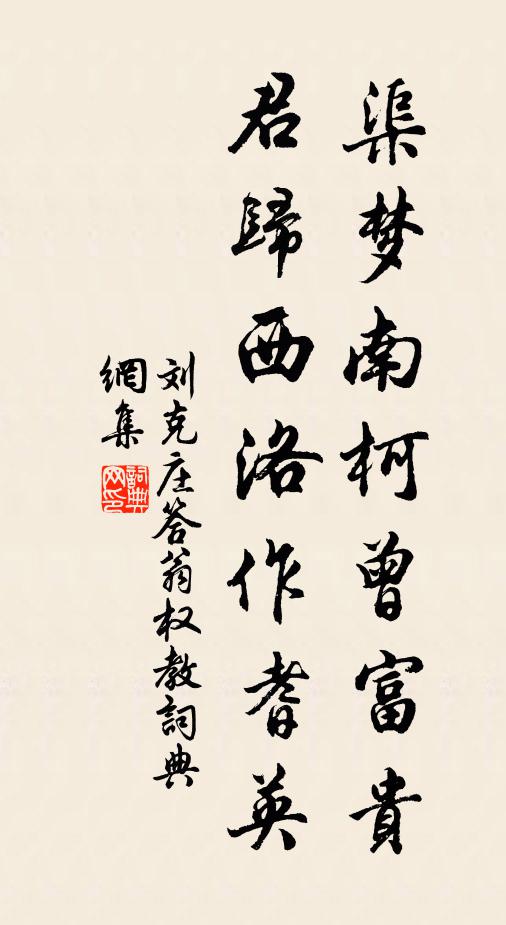 渠梦南柯曾富貴
君歸西洛作耆英
刘克庄答翁权教詞典
網集
詞典
网印